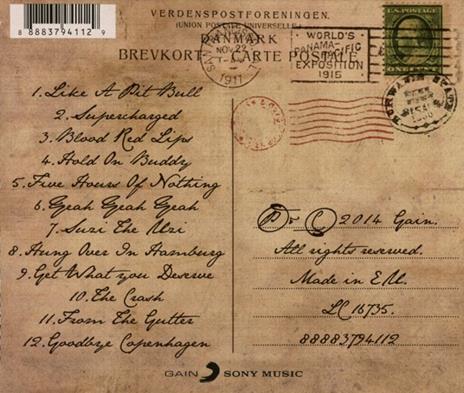 8 88837 94112 9
VERDENSPOSTFORENINGEN.
(UNION POSTALE UNIVERSELLE)
DANMARK
BREVKORT - CARTE POSTALE
NOV 22
1911
WORLD'S
PANAMA-PACIFIC
EXPOSITION
1915
U.S. POSTAGE
1. Like A Pit Bull
2. Supercharged
3. Blood Red Lips
4. Hold On Buddy
5. Five Hours Of Nothing
6. Yeah Yeah Yeah
7. Suzi The Uzi
8. Hung Over In Hamburg
9. Get What you Deserve
10. The Crash
11. From The Gutter
12. Goodbye Copenhagen
P & C 2014 Gain.
All rights reserved.
Made in EU.
LC 16735.
88883794112
GAIN SONY MUSIC